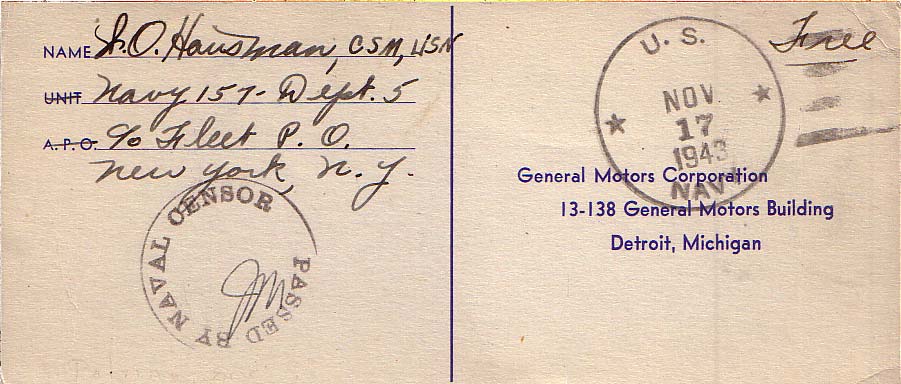 NAME S. O. Hausman, CSM, USN
UNIT Navy 157 - Dept. 5
A.P.O. c/o Fleet P. O.
New York, N. Y.
PASSED BY NAVAL CENSOR
JM
U. S.
NOV
17
1943
NAVY
Free
General Motors Corporation
13-138 General Motors Building
Detroit, Michigan